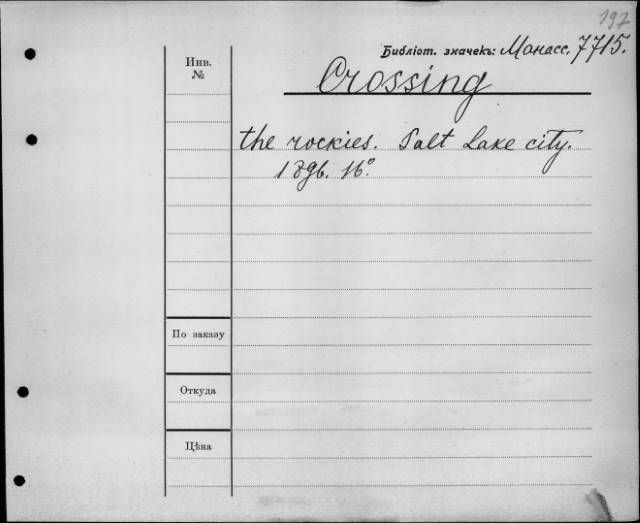 197
Библіот. значекъ: Монасс. 7715.
Инв. №
Crossing
the rockies. Salt Lake city.
1896. 16°
По заказу
Откуда
Цѣна